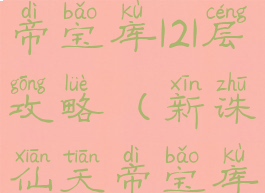 dì bǎo kù céng
帝宝库121层
gōng lüè xīn zhū
攻略(新诛
xiān tiān dì bǎo kù
仙天帝宝库